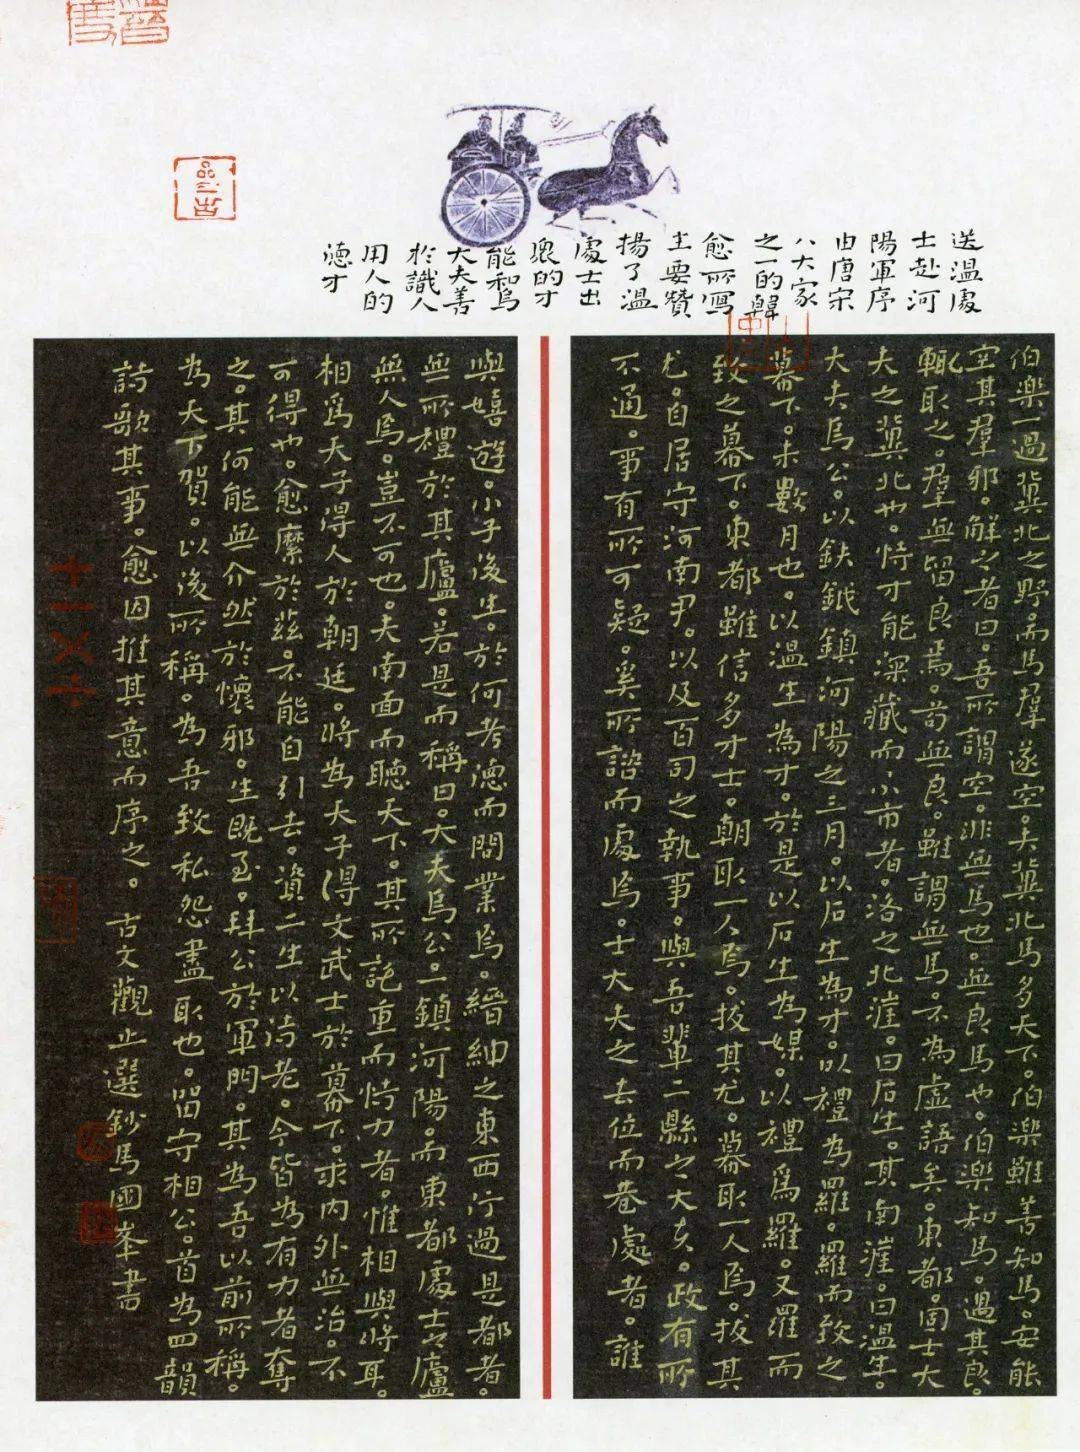 送溫處
士赴河
陽軍序
由唐宋
八大家
之一的韓
愈所寫
主要贊
揚了溫
處士出
衆的才
能和烏
大夫善
於識人
用人的
德才
伯樂一過冀北之野。而馬羣遂空。夫冀北馬多天下。伯樂雖善知馬。安能
空其羣邪。解之者曰。吾所謂空。非無馬也。無良馬也。伯樂知馬。遇其良。
輒取之。羣無留良焉。苟無良。雖謂無馬。不為虛語矣。東都。固士大
夫之冀北也。恃才能深藏而不市者。洛之北涯。曰石生。其南涯。曰溫生。
大夫烏公。以鈇鉞鎮河陽之三月。以石生為才。以禮為羅。羅而致之
幕下。未數月也。以溫生為才。於是以石生為媒。以禮為羅。又羅而
致之幕下。東都雖信多才士。朝取一人焉。拔其尤。暮取一人焉。拔其
尤。自居守河南尹。以及百司之執事。與吾輩二縣之大夫。政有所
不通。事有所可疑。奚所諮而處焉。士大夫之去位而巷處者。誰
與嬉遊。小子後生。於何考德而問業焉。縉紳之東西行過是都者。
無所禮於其廬。若是而稱曰。大夫烏公。一鎮河陽。而東都處士之廬
無人焉。豈不可也。夫南面而聽天下。其所託重而恃力者。惟相與將耳。
相為天子得人於朝廷。將為天子得文武士於幕下。求內外無治。不
可得也。愈縻於茲。不能自引去。資二生以待老。今皆為有力者奪
之。其何能無介然於懷邪。生既至。拜公於軍門。其為吾以前所稱。
為天下賀。以後所稱。為吾致私怨盡取也。留守相公。首為四韻
詩歌其事。愈因推其意而序之。古文觀止選鈔馬國峯書